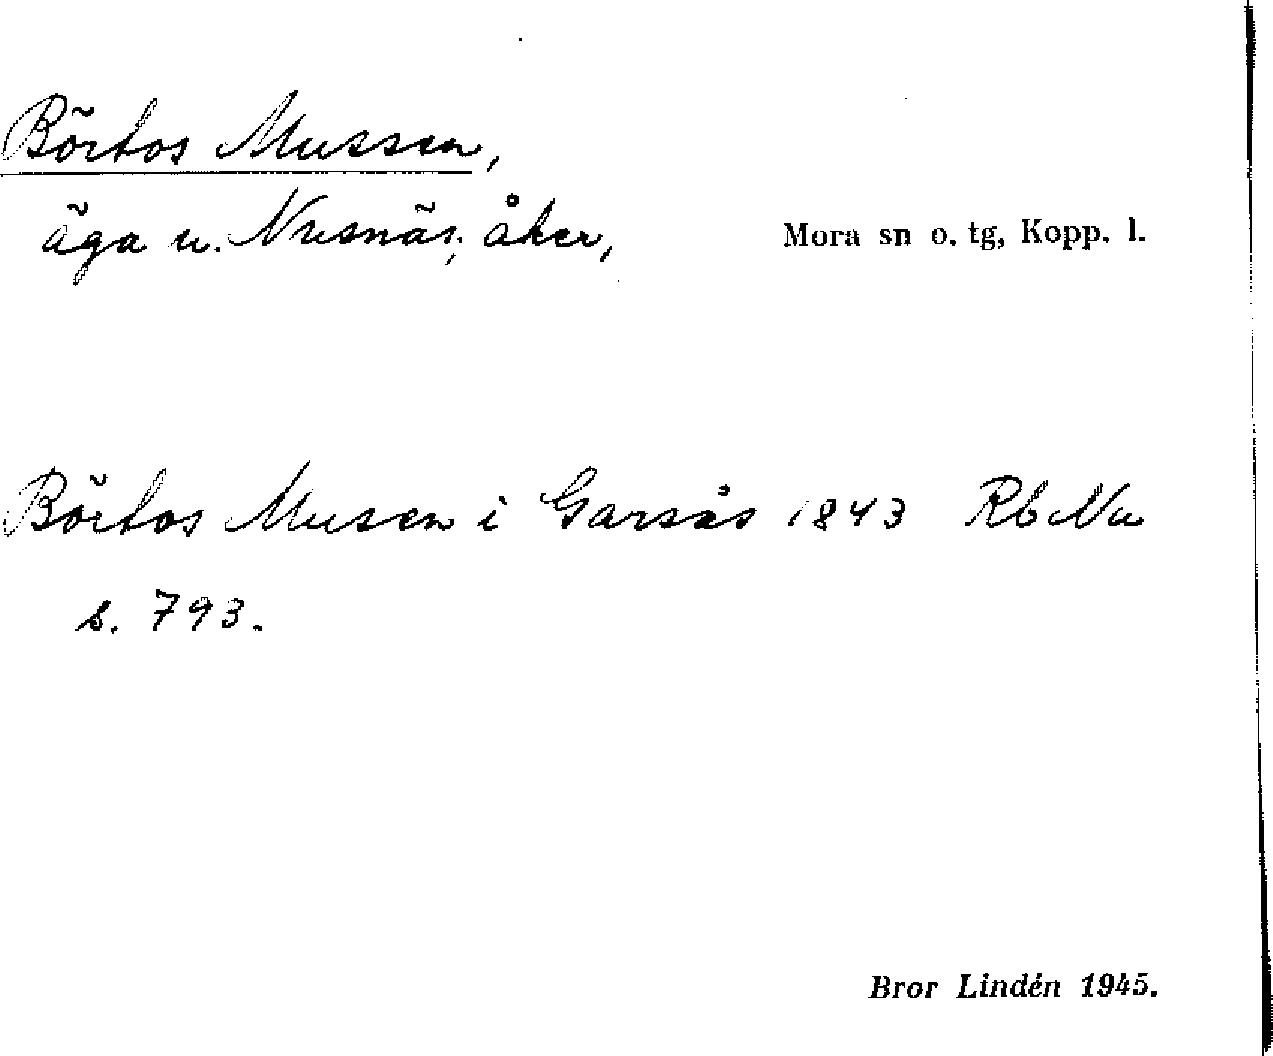 Börtos Mussen,
äga u. Nusnäs; åker,
Mora sn o. tg, Kopp. l.
Börtos Musen i Garsås 1843 Rb Nu
s. 793.
Bror Lindén 1945.